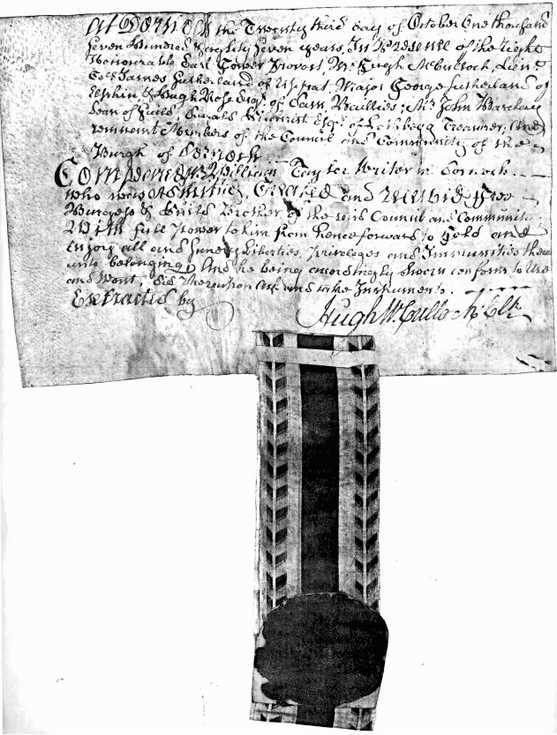 At Dornoch the Twenty third day of October One thousand
Seven hundred & eighty seven years, In Presence of the Right
Honourable Earl Gower Provost, Mr Hugh McCulloch, Lieut
Coll James Sutherland of Uppat, Major George Sutherland of
& Hugh Rose Esqr. of Baillies; Mr John
Dean of Guild, Esqr. of Treasurer, and
remnent Members of the Council and Community of the
Burgh of Dornoch
Compeared William Taylor Writer in Dornoch
who was Admitted, Created and Received
Burgess & Guild Brother of the said Council and Community
With full Power to him from henceforward to hold and
enjoy all and Sundry Liberties, Priviledges and Immunities
unto belonging, And he being accordingly Sworn conform to Use
and Wont. He Thereupon Ask and take Instruments.
Extracted by
Hugh McCulloch Clk